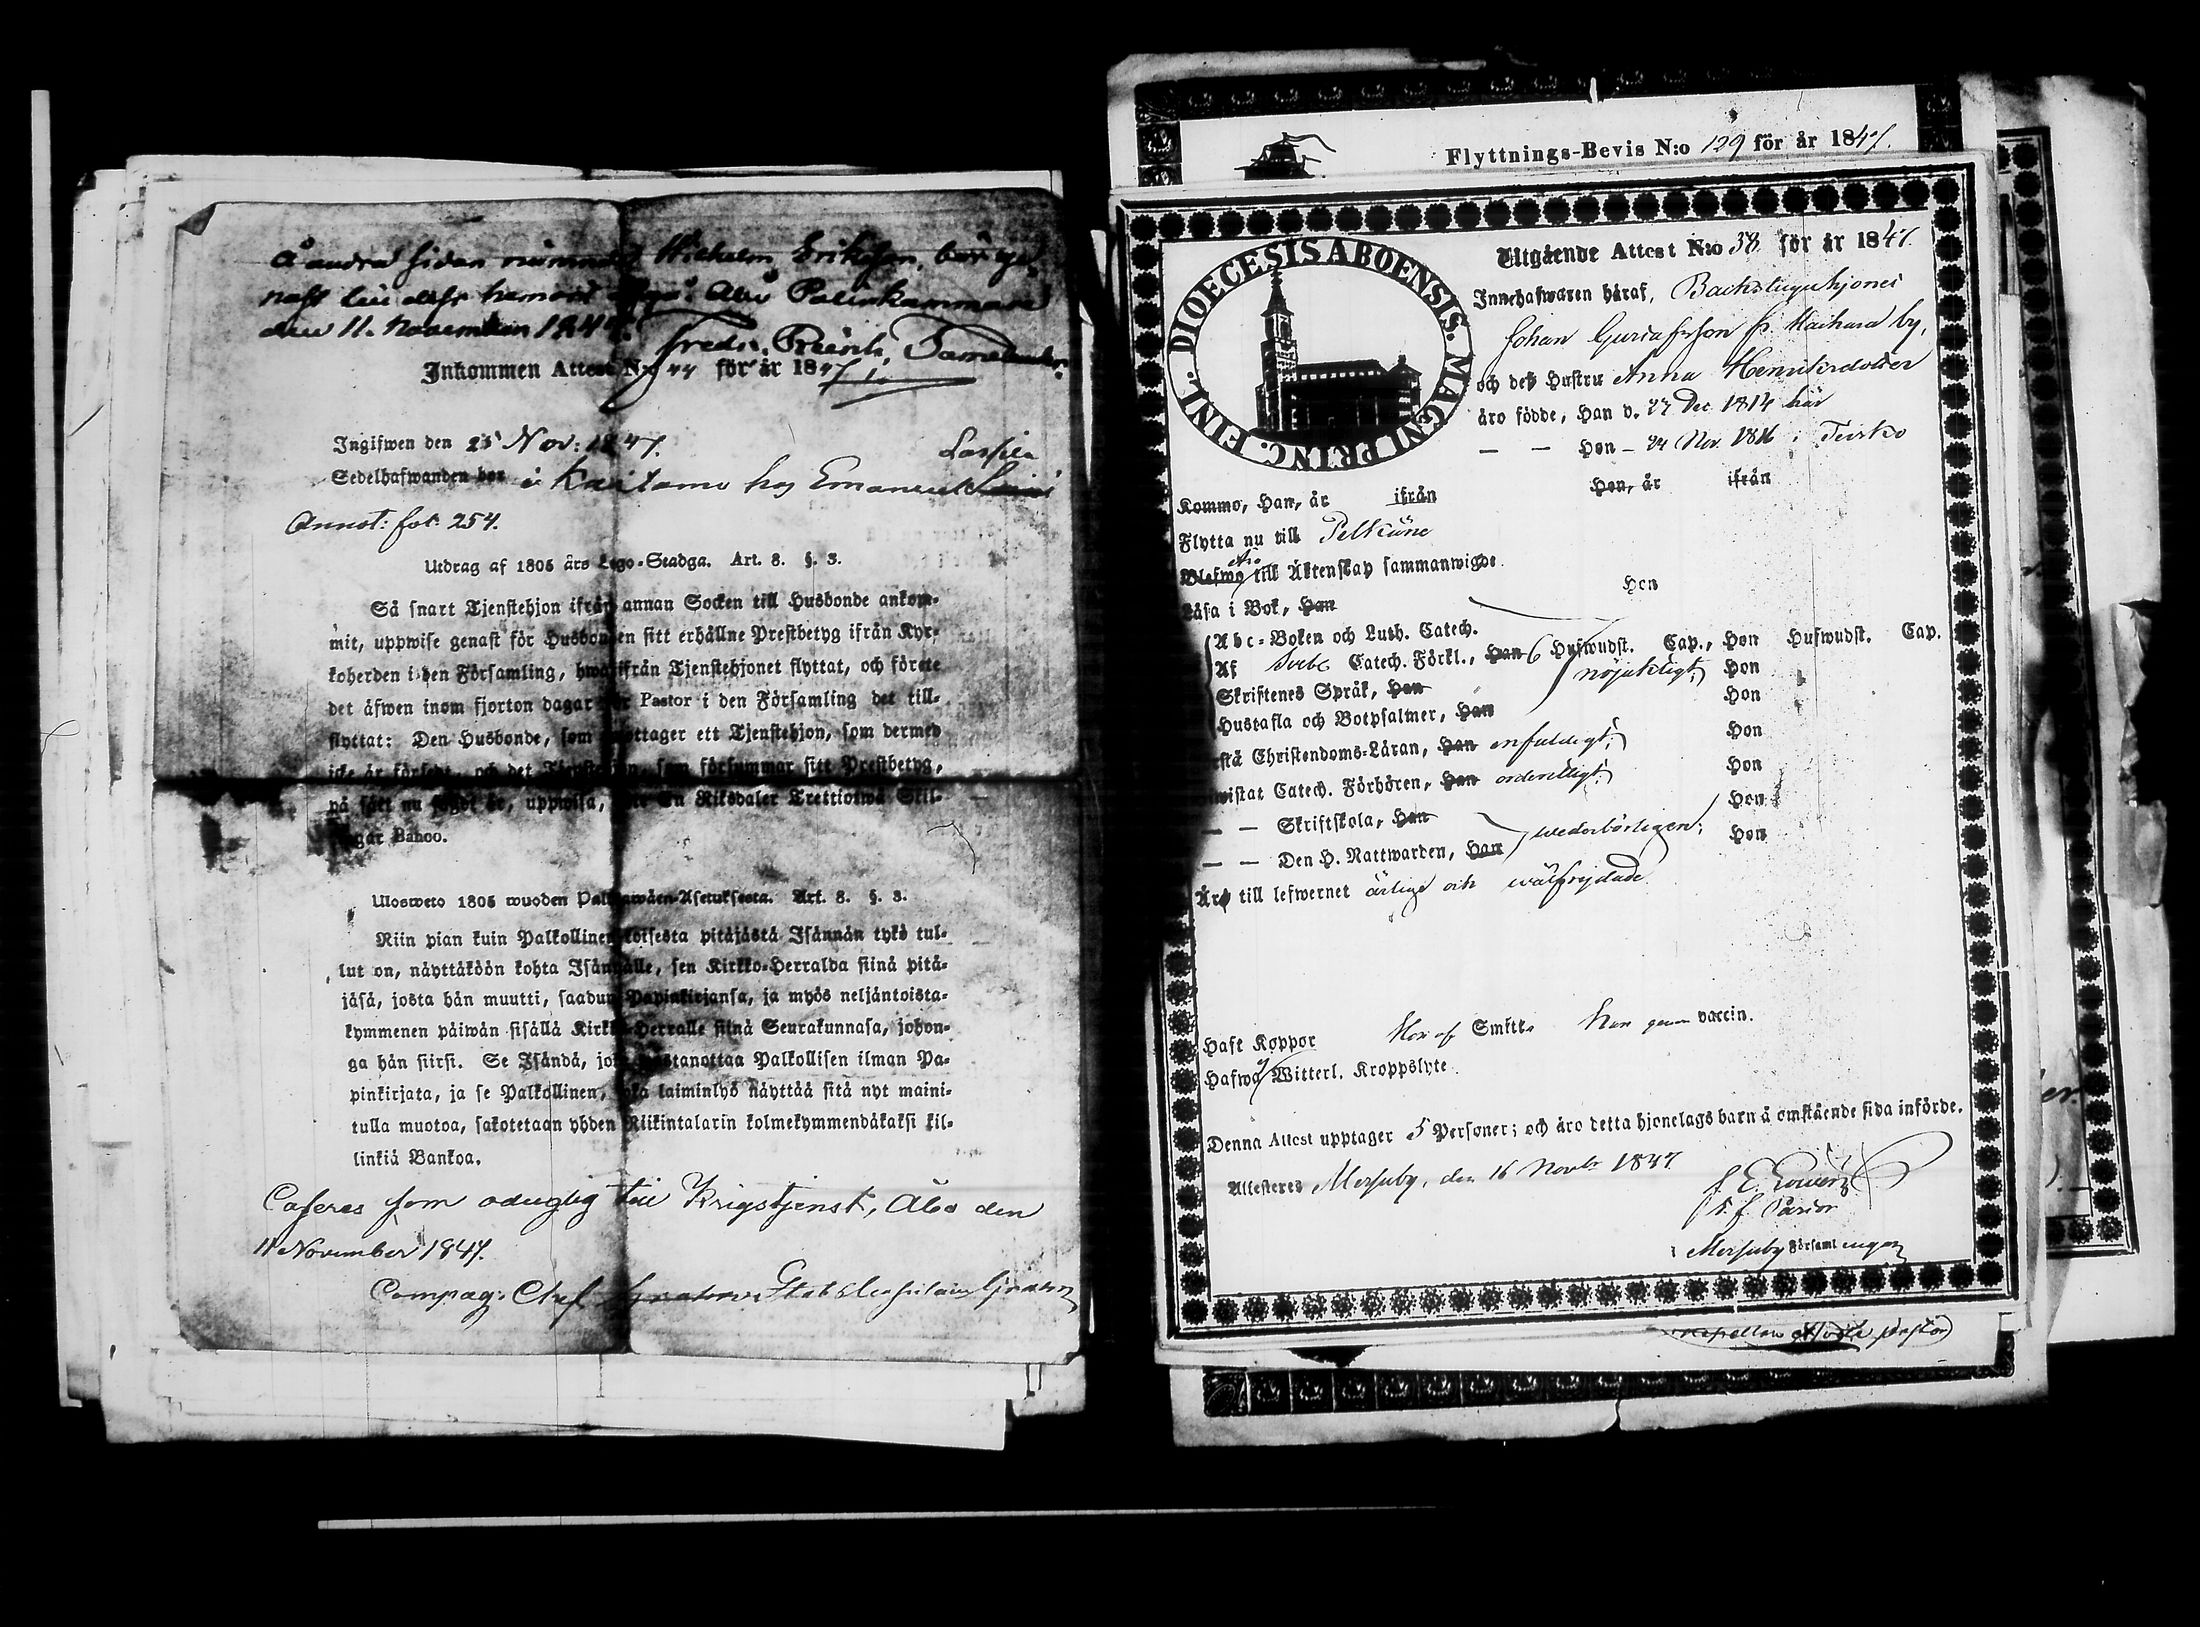 Å andra sidan nämnde Wilhelm Eriksson, bör ge
nast till dess hemort Åbo Poliskammare
den 11. November 1847.
Inkommen Attest N:o 44 för år 1847.
Ingifwen den 25 Nov: 1847.
Lassila
Sedelhafwanden bor i Kaitamo hos Emanuel
Annot: fol: 254.
Utdrag af 1805 års Lego-Stadga. Art. 8. §. 3.
Så snart Tjenstehjon ifrån annan Socken till Husbonde ankom-
mit, uppwise genast för Husbonden sitt erhållne Prestbetyg ifrån Kyr-
koherden i den Församling, hwarifrån Tjenstehjonet flyttat, och förete
det äfwen inom fjorton dagar för Pastor i den Församling det till-
flyttat: Den Husbonde, som emottager ett Tjenstehjon, som dermed
icke är försedt, och det Tjenstehjon, som försummar sitt Prestbetyg,
på sätt nu sagdt är, uppwisa, böte En Riksdaler Trettiotwå Skil-
lingar Banco.
Ulosweto 1805 wuoden Palkkawäen-Asetuksesta. Art. 8. §. 3.
Niin pian kuin Palkollinen toisesta pitäjästä Isännän tykö tul-
lut on, näyttäköön kohta Isännälle, sen Kirkko-Herralda siinä pitä-
jäsä, josta hän muutti, saadun Papinkirjansa, ja myös neljäntoista-
kymmenen päiwän sisällä Kirkko-Herralle siinä Seurakunnasa, johon-
ga hän siirsi. Se Isändä, joka wastanottaa Palkollisen ilman Pa-
pinkirjata, ja se Palkollinen, joka laiminlyö näyttää sitä nyt maini-
tulla muotoa, sakotetaan yhden Riikintalarin kolmekymmendäkaksi kil-
linkiä Bankoa.
Caseras som oduglig till Krigstjenst, Åbo den
11 November 1847.
Compag: Chef
Flyttnings-Bevis N:o 129 för år 1847.
DIOECESIS ABOENSIS. MAGNI PRINC. FINL.
Utgående Attest N:o 38 för år 1847.
Innehafwaren häraf, Backstuguhjonet
Johan Gustafsson fr. by,
och deß Hustru Anna Henriksdotter
äro födde, Han d. 27 Dec 1814 här
— — Hon - 24 Nov. 1816 i Teisko
Kommo, Han, år ifrån Hon, år ifrån
Flytta nu till Pelkäne
Blefwo till Äktenskap sammanwigde
Läsa i Bok, Han Hon
Abc-Boken och Luth. Catech.
Af Svebel. Catech. Förkl., Han 6 Hufwudst. Cap., Hon Hufwudst. Cap.
Skriftenes Språk, Han nöjaktigt; Hon
Hustafla och Botpsalmer, Han Hon
Förstå Christendoms-Läran, Han enfaldigt; Hon
Bewistat Catech. Förhören, Han ordentligt; Hon
— — Skriftskola, Han Hon
— — Den H. Nattwarden, Han wederbörligen; Hon
Äro till lefwernet ärlige och wälfrejdade
Haft Koppor Hon af Smitt. Han genom vaccin.
Hafwa Witterl. Kroppslyte
Denna Attest upptager 5 Personer; och äro detta hjonelags barn å omstående sida införde.
Attesteres Messuby, den 16 Novbr 1847.
v. f. Pastor
i Messuby Församlingen